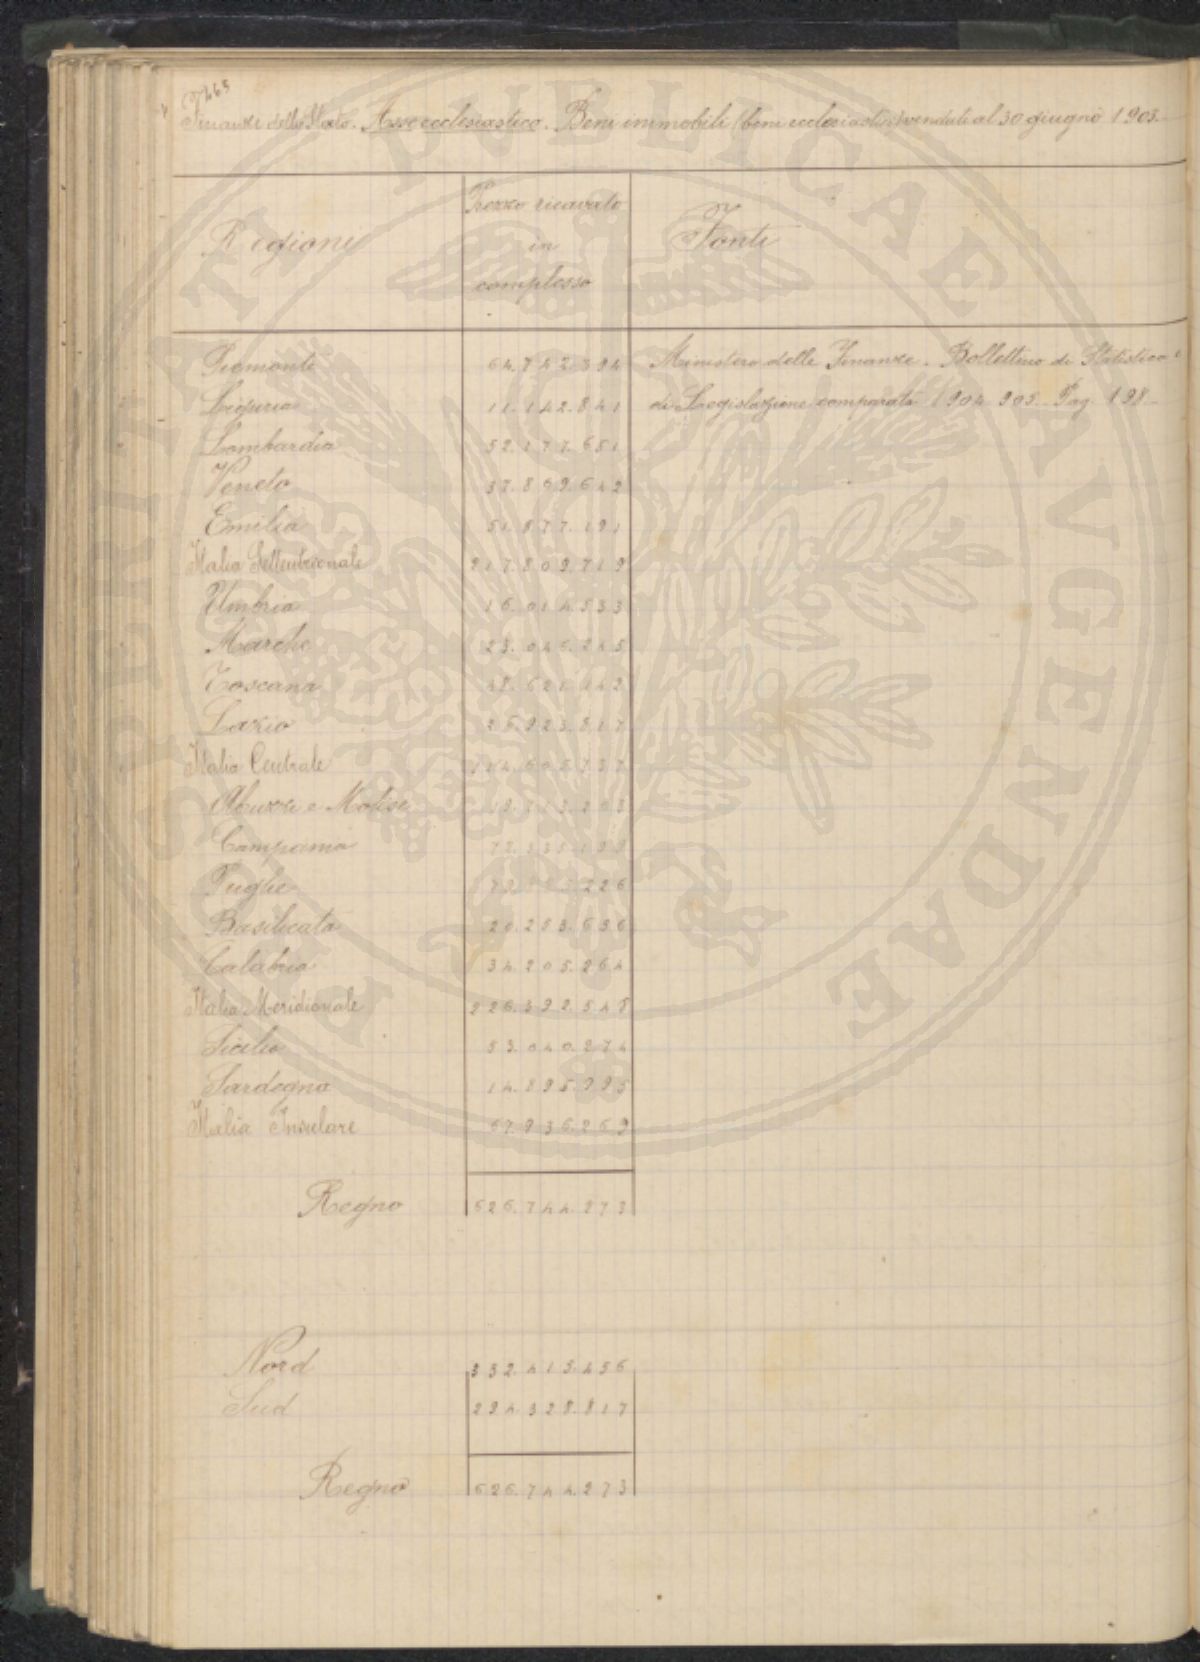 465
Finanze dello Stato. Asse ecclesiastico. Beni immobili (beni ecclesiastici) venduti al 30 giugno 1903.
Regioni
Prezzo ricavato
in
complesso
Fonti
Piemonte 64.742.394 Ministero delle Finanze. Bollettino di Statistica e
Liguria 11.142.841 di Legislazione comparata 1904-905. Pag. 198
Lombardia 52.177.651
Veneto 37.869.642
Emilia 51.877.191
Italia Settentrionale 217.809.719
Umbria 16.014.533
Marche 23.046.245
Toscana 48.621.142
Lazio 26.923.817
Italia Centrale 114.605.737
Abruzzi e Molise
Campania
Puglie
Basilicata
Calabria 34.205.264
Italia Meridionale 226.392.548
Sicilia 53.040.274
Sardegna 14.895.995
Italia Insulare 67.936.269
Regno 626.744.273
Nord 332.415.456
Sud 294.328.817
Regno 626.744.273
PUBLICAE AVGENDAE PROSPERITATI